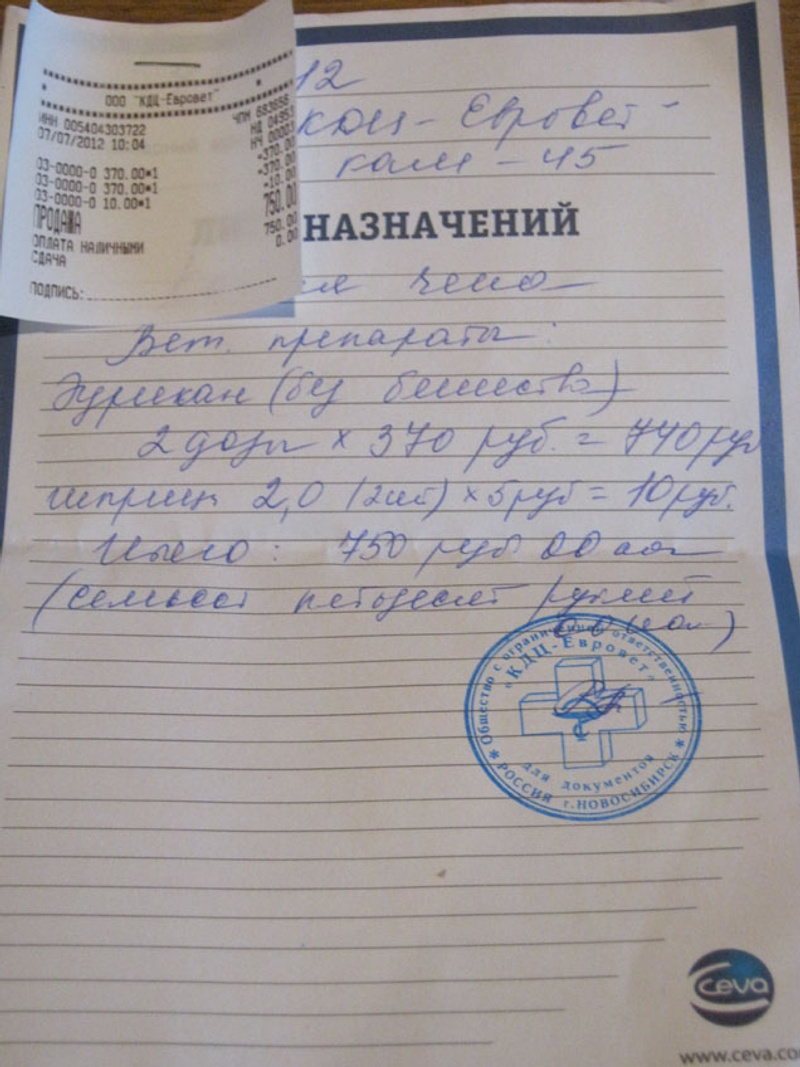 ООО "КДЦ-Евровет"
ЧПН 683656
ИНН 005404303722 НД 04953
07/07/2012 10:04 НЧ 00003
=370.00
03-0000-0 370.00*1 =370.00
03-0000-0 370.00*1 =10.00
03-0000-0 10.00*1
ПРОДАЖА 750.00
ОПЛАТА НАЛИЧНЫМИ 750.00
СДАЧА 0.00
ПОДПИСЬ:
12
КДЦ - Евровет"
- 45
НАЗНАЧЕНИЙ
Вет. препараты:
Эурикан (без бешенства)
2 дозы х 370 руб. = 740 руб
шприц 2,0 (2шт) х 5 руб = 10 руб.
Итого: 750 руб 00 коп
(семьсот пятьдесят рублей
00 коп)
Общество с ограниченной ответственностью
"КДЦ-Евровет"
для документов
* РОССИЯ г.НОВОСИБИРСК *
ceva
www.ceva.co